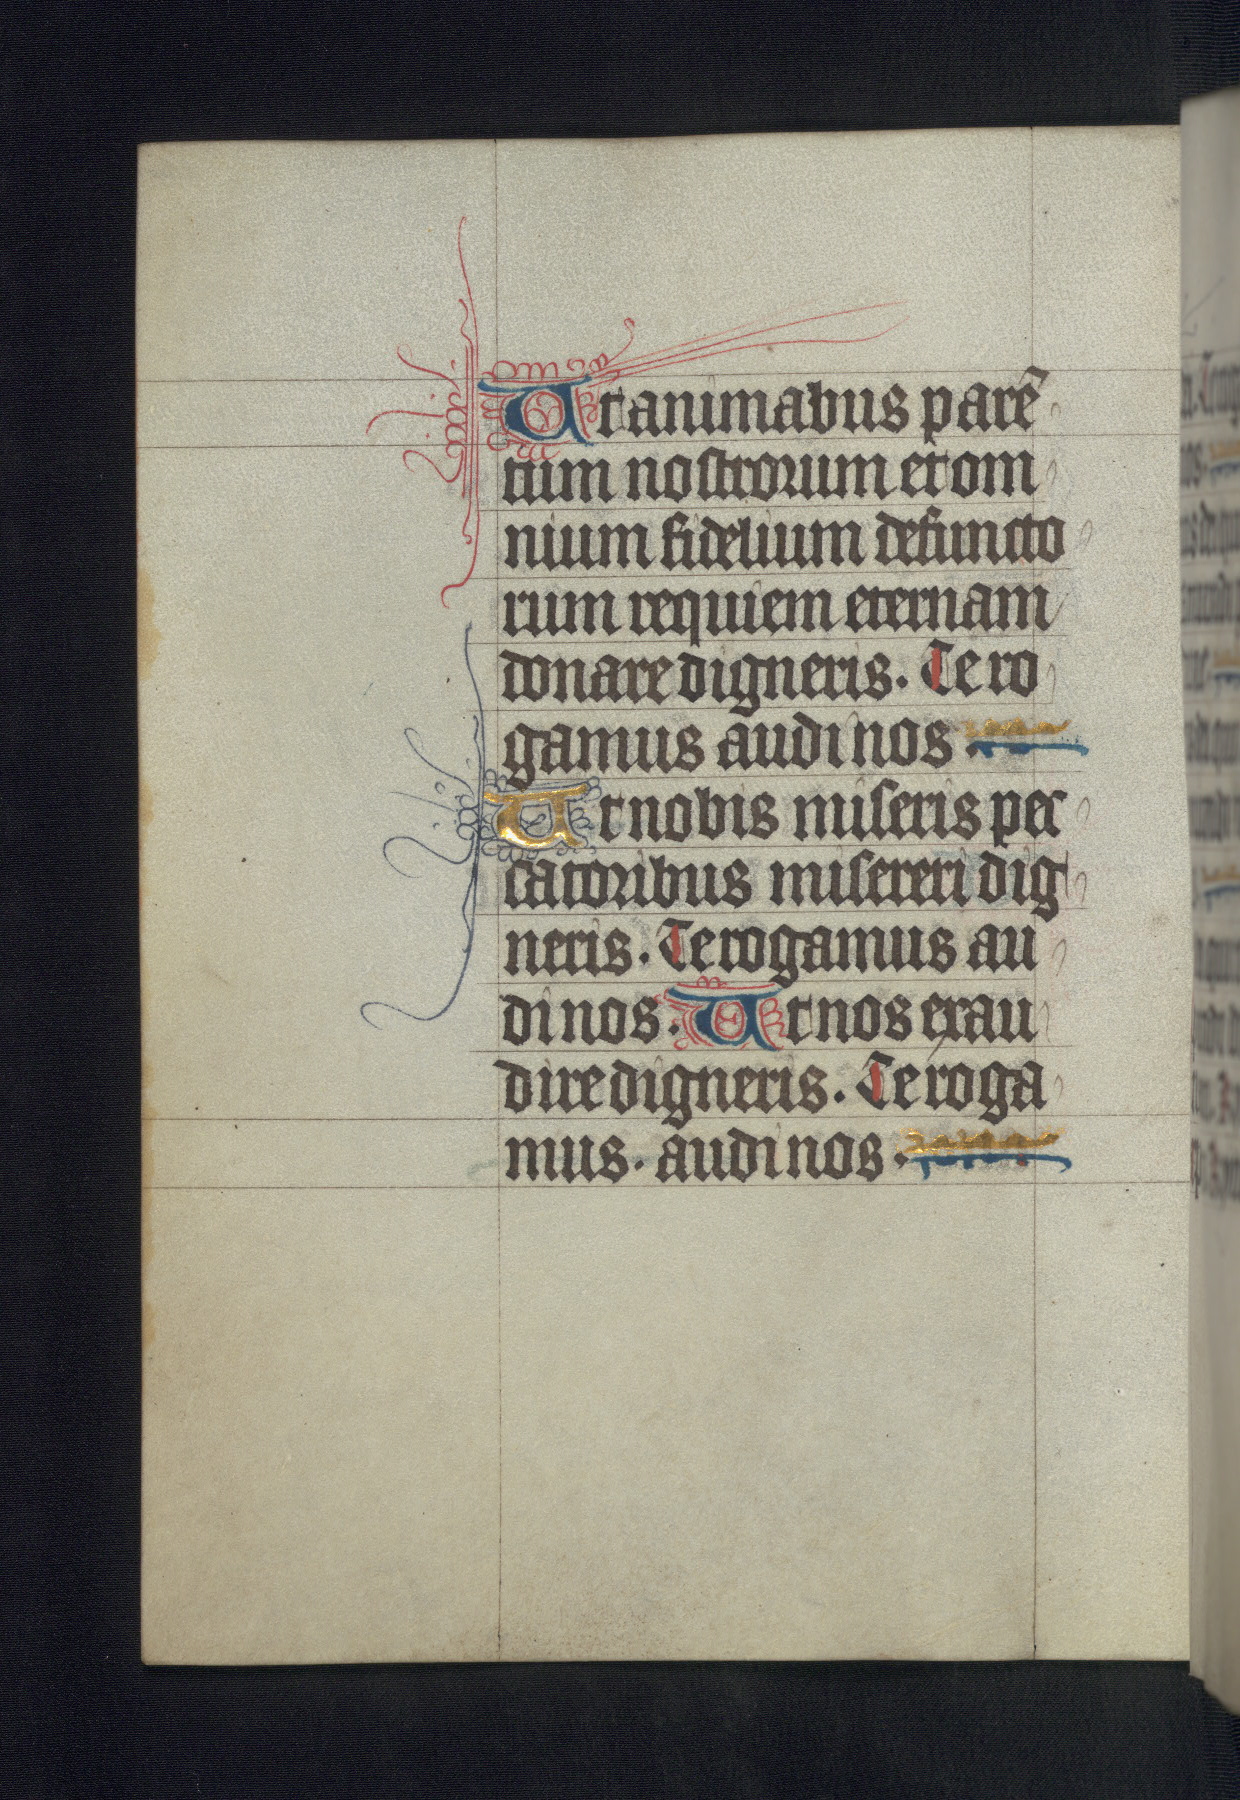 Ut animabus parē
tum nostrorum et om
nium fidelium defuncto
rum requiem eternam
donare digneris. Te ro
gamus audi nos.
Ut nobis miseris pec
catoribus misereri dig
neris. Te rogamus au
di nos. Ut nos exau
dire digneris. Te roga
mus. audi nos.